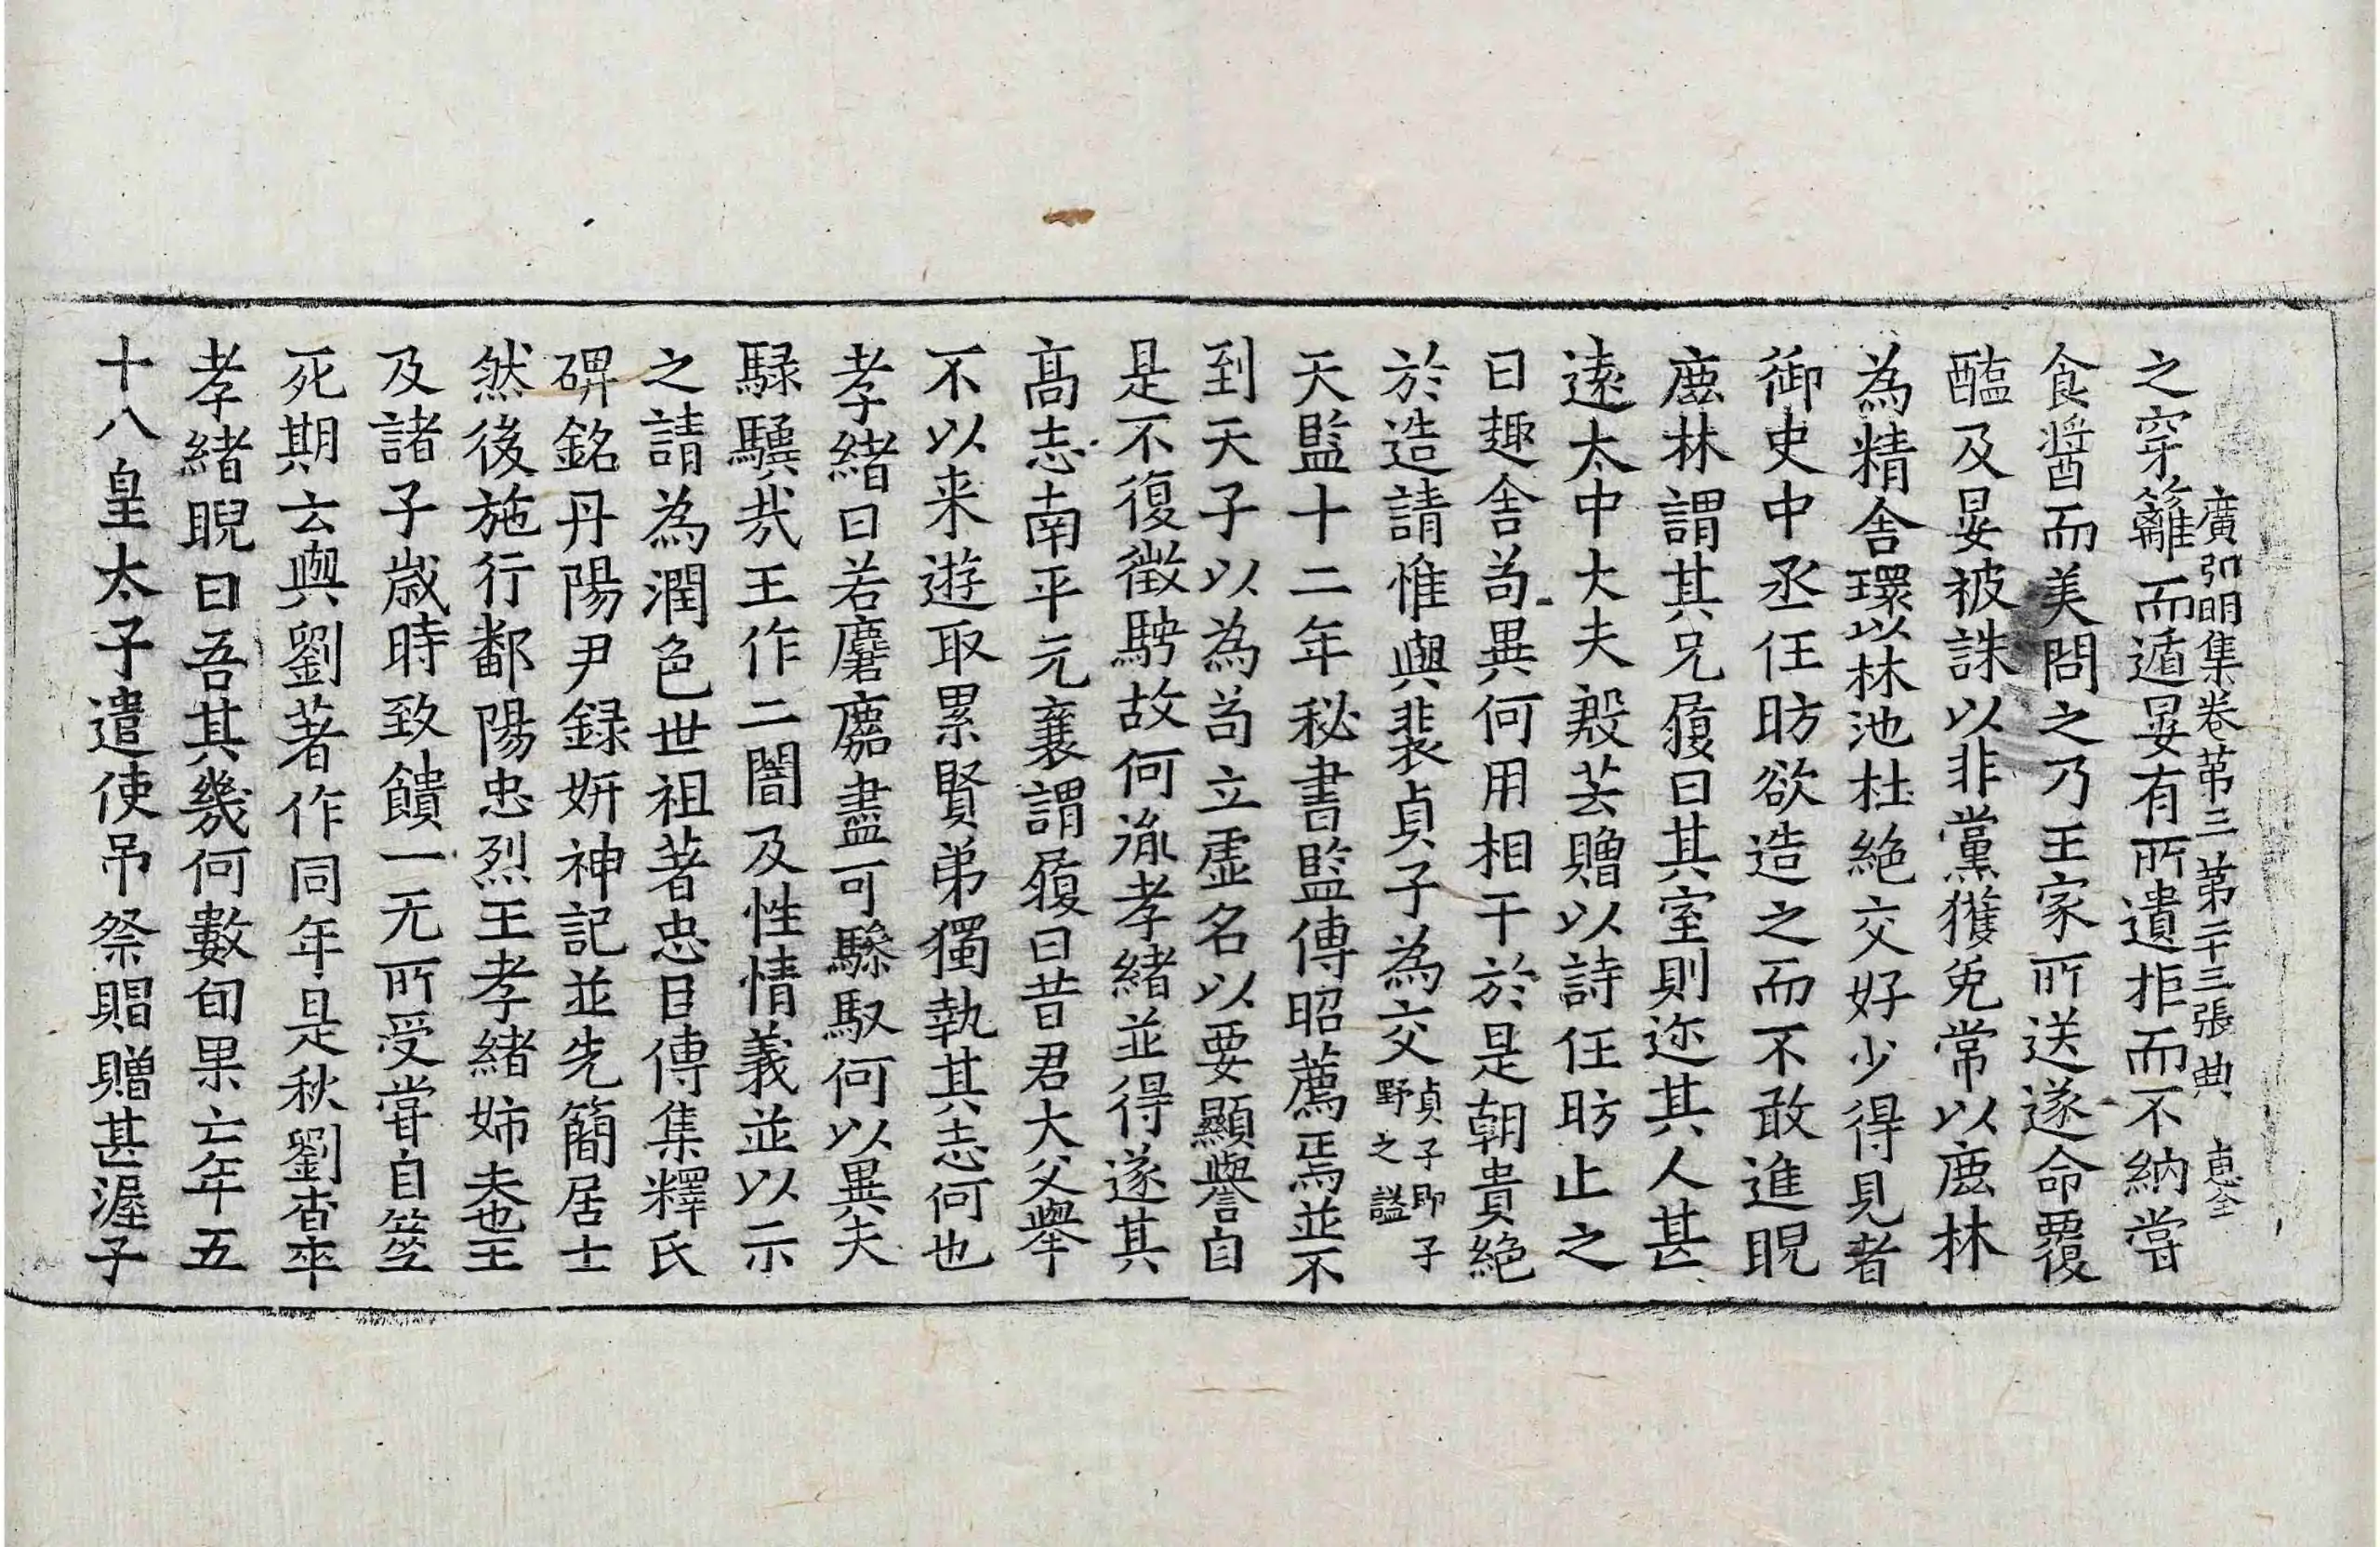 廣弘明集卷苐三 苐二十三張 典 惠全
之穿籬而遁晏有所遺拒而不納嘗
食醬而美問之乃王家所送遂命覆
醢及晏被誅以非黨獲免常以鹿林
為精舍環以林池杜絕交好少得見者
御史中丞任昉欲造之而不敢進睨
鹿林謂其兄履曰其室則迩其人甚
遠太中大夫殷芸贈以詩任昉止之
曰趣舍苟異何用相干於是朝貴絕
於造請惟與裴貞子為交貞子即子野之謚
天監十二年秘書監傅昭薦焉並不
到天子以為苟立虛名以要顯譽自
是不復徵騁故何胤孝緒並得遂其
高志南平元襄謂履曰昔君大父舉
不以来遊取累賢弟獨執其志何也
孝緒曰若麏麚盡可驂馭何以異夫
騄驥哉王作二闇及性情義並以示
之請為潤色世祖著忠臣傳集釋氏
碑銘丹陽尹録妍神記並先簡居士
然後施行鄱陽忠烈王孝緒姉夫也王
及諸子歲時致饋一无所受嘗自筮
死期云與劉著作同年是秋劉杳卒
孝緒睨曰吾其幾何數旬果亡年五
十八皇太子遣使吊祭賵贈甚渥子